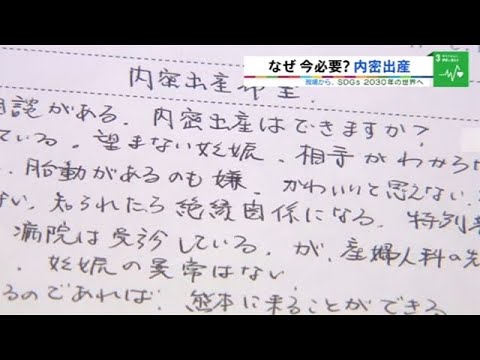 なぜ 今必要? 内密出産
現場から、SDGs 2030年の世界へ
3
内密出産希望
相談がある。内密出産はできますか?
ている。望まない妊娠、相手がわからな
、胎動があるのも嫌、かわいいと思えない、
ない、知られたら絶縁関係になる、特別養
病院は受診している。が、産婦人科の先
、妊娠の異常はない。
るのであれば、熊本に来ることができる